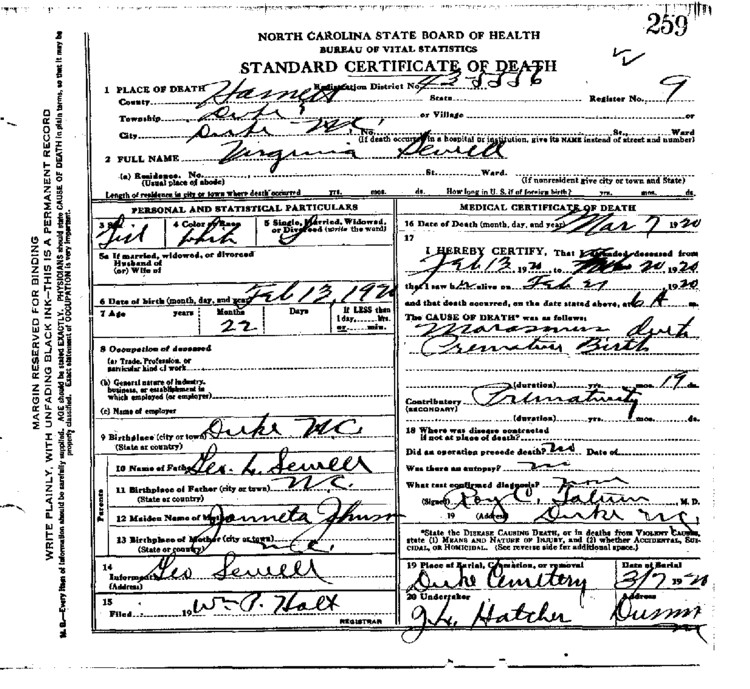 259
NORTH CAROLINA STATE BOARD OF HEALTH
BUREAU OF VITAL STATISTICS
STANDARD CERTIFICATE OF DEATH
1 PLACE OF DEATH Registration District No. 43-5556
County Harnett State Register No. 9
Township Duke or Village or
City Duke N.C. No. St., Ward
(If death occurred in a hospital or institution, give its NAME instead of street and number)
2 FULL NAME Virginia Sewell
(a) Residence. No. St. Ward.
(Usual place of abode) (If nonresident give city or town and State)
Length of residence in city or town where death occurred yrs. mos. ds. How long in U. S. if of foreign birth? yrs. mos. ds.
PERSONAL AND STATISTICAL PARTICULARS
3 Sex 4 Color or Race 5 Single, Married, Widowed, or Divorced (write the word)
Girl White S
5a If married, widowed, or divorced
Husband of
(or) Wife of
6 Date of birth (month, day, and year) Feb 13, 1920
7 Age years Months Days If LESS then
1 day, hrs.
or min.
22
8 Occupation of deceased
(a) Trade, Profession, or
particular kind of work
(b) General nature of industry,
business, or establishment in
which employed (or employer)
(c) Name of employer
9 Birthplace (city or town) Duke N.C.
(State or country)
Parents
10 Name of Father Geo. L. Sewell
11 Birthplace of Father (city or town) N.C.
(State or country)
12 Maiden Name of Mother
13 Birthplace of Mother (city or town)
(State or country) N.C.
14
Informant Geo Sewell
(Address)
15
Filed 19 Wm P. Holt
REGISTRAR
MEDICAL CERTIFICATE OF DEATH
16 Date of Death (month, day, and year) Mar 7 1920
17
I HEREBY CERTIFY, That I attended deceased from
Feb 13, 1920 to 20, 1920
that I saw h alive on Feb 1920
and that death occurred, on the date stated above, at 6 A m.
The CAUSE OF DEATH* was as follows:
Marasmus
Premature Birth
(duration) yrs. mos. 19 ds.
Contributory Prematurity
(SECONDARY)
(duration) yrs. mos. ds.
18 Where was disease contracted
if not at place of death?
Did an operation precede death? No Date of
Was there an autopsy? no
What test confirmed diagnosis?
(Signed) M. D.
19 (Address) Duke N.C.
*State the DISEASE CAUSING DEATH, or in deaths from VIOLENT CAUSES,
state (1) MEANS AND NATURE OF INJURY, and (2) whether ACCIDENTAL, SUI-
CIDAL, OR HOMICIDAL. (See reverse side for additional space.)
19 Place of Burial, Cremation, or removal Date of Burial
Duke Cemetery 3/7 1920
20 Undertaker Address
J.L. Hatcher Dunn
MARGIN RESERVED FOR BINDING
WRITE PLAINLY, WITH UNFADING BLACK INK—THIS IS A PERMANENT RECORD
N. B.—Every item of information should be carefully supplied. AGE should be stated EXACTLY. PHYSICIANS should state CAUSE OF DEATH in plain terms, so that it may be
properly classified. Exact statement of OCCUPATION is very important.